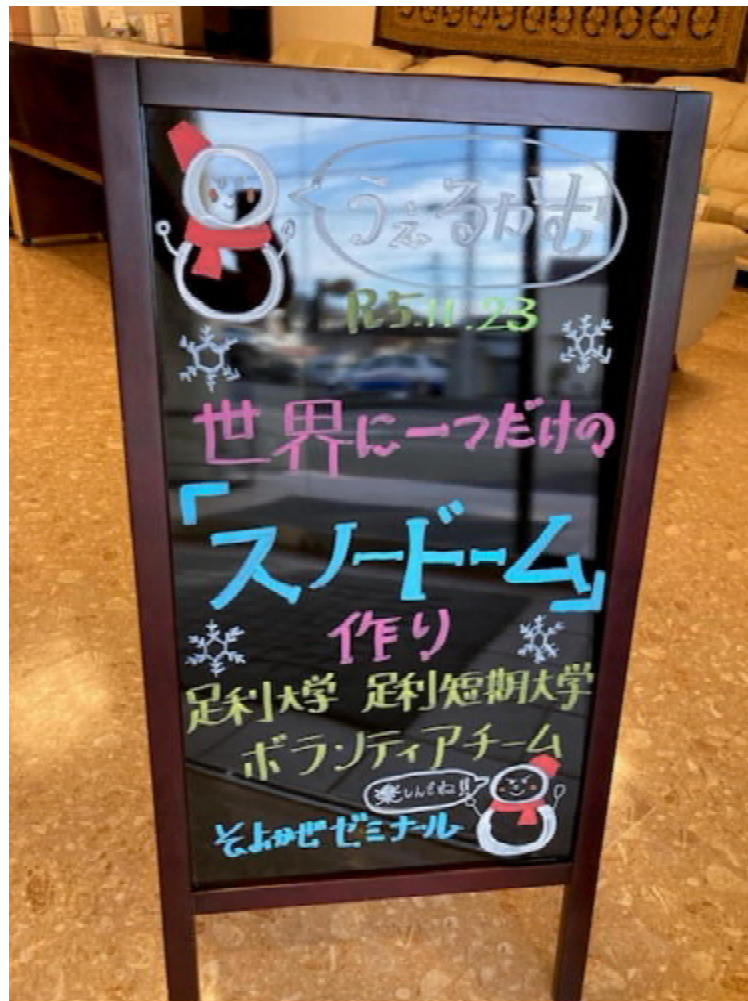 うぇるかむ
R5.11.23
世界に一つだけの
「スノードーム」
作り
足利大学 足利短期大学
ボランティアチーム
楽しんでね!!
そよかぜゼミナール